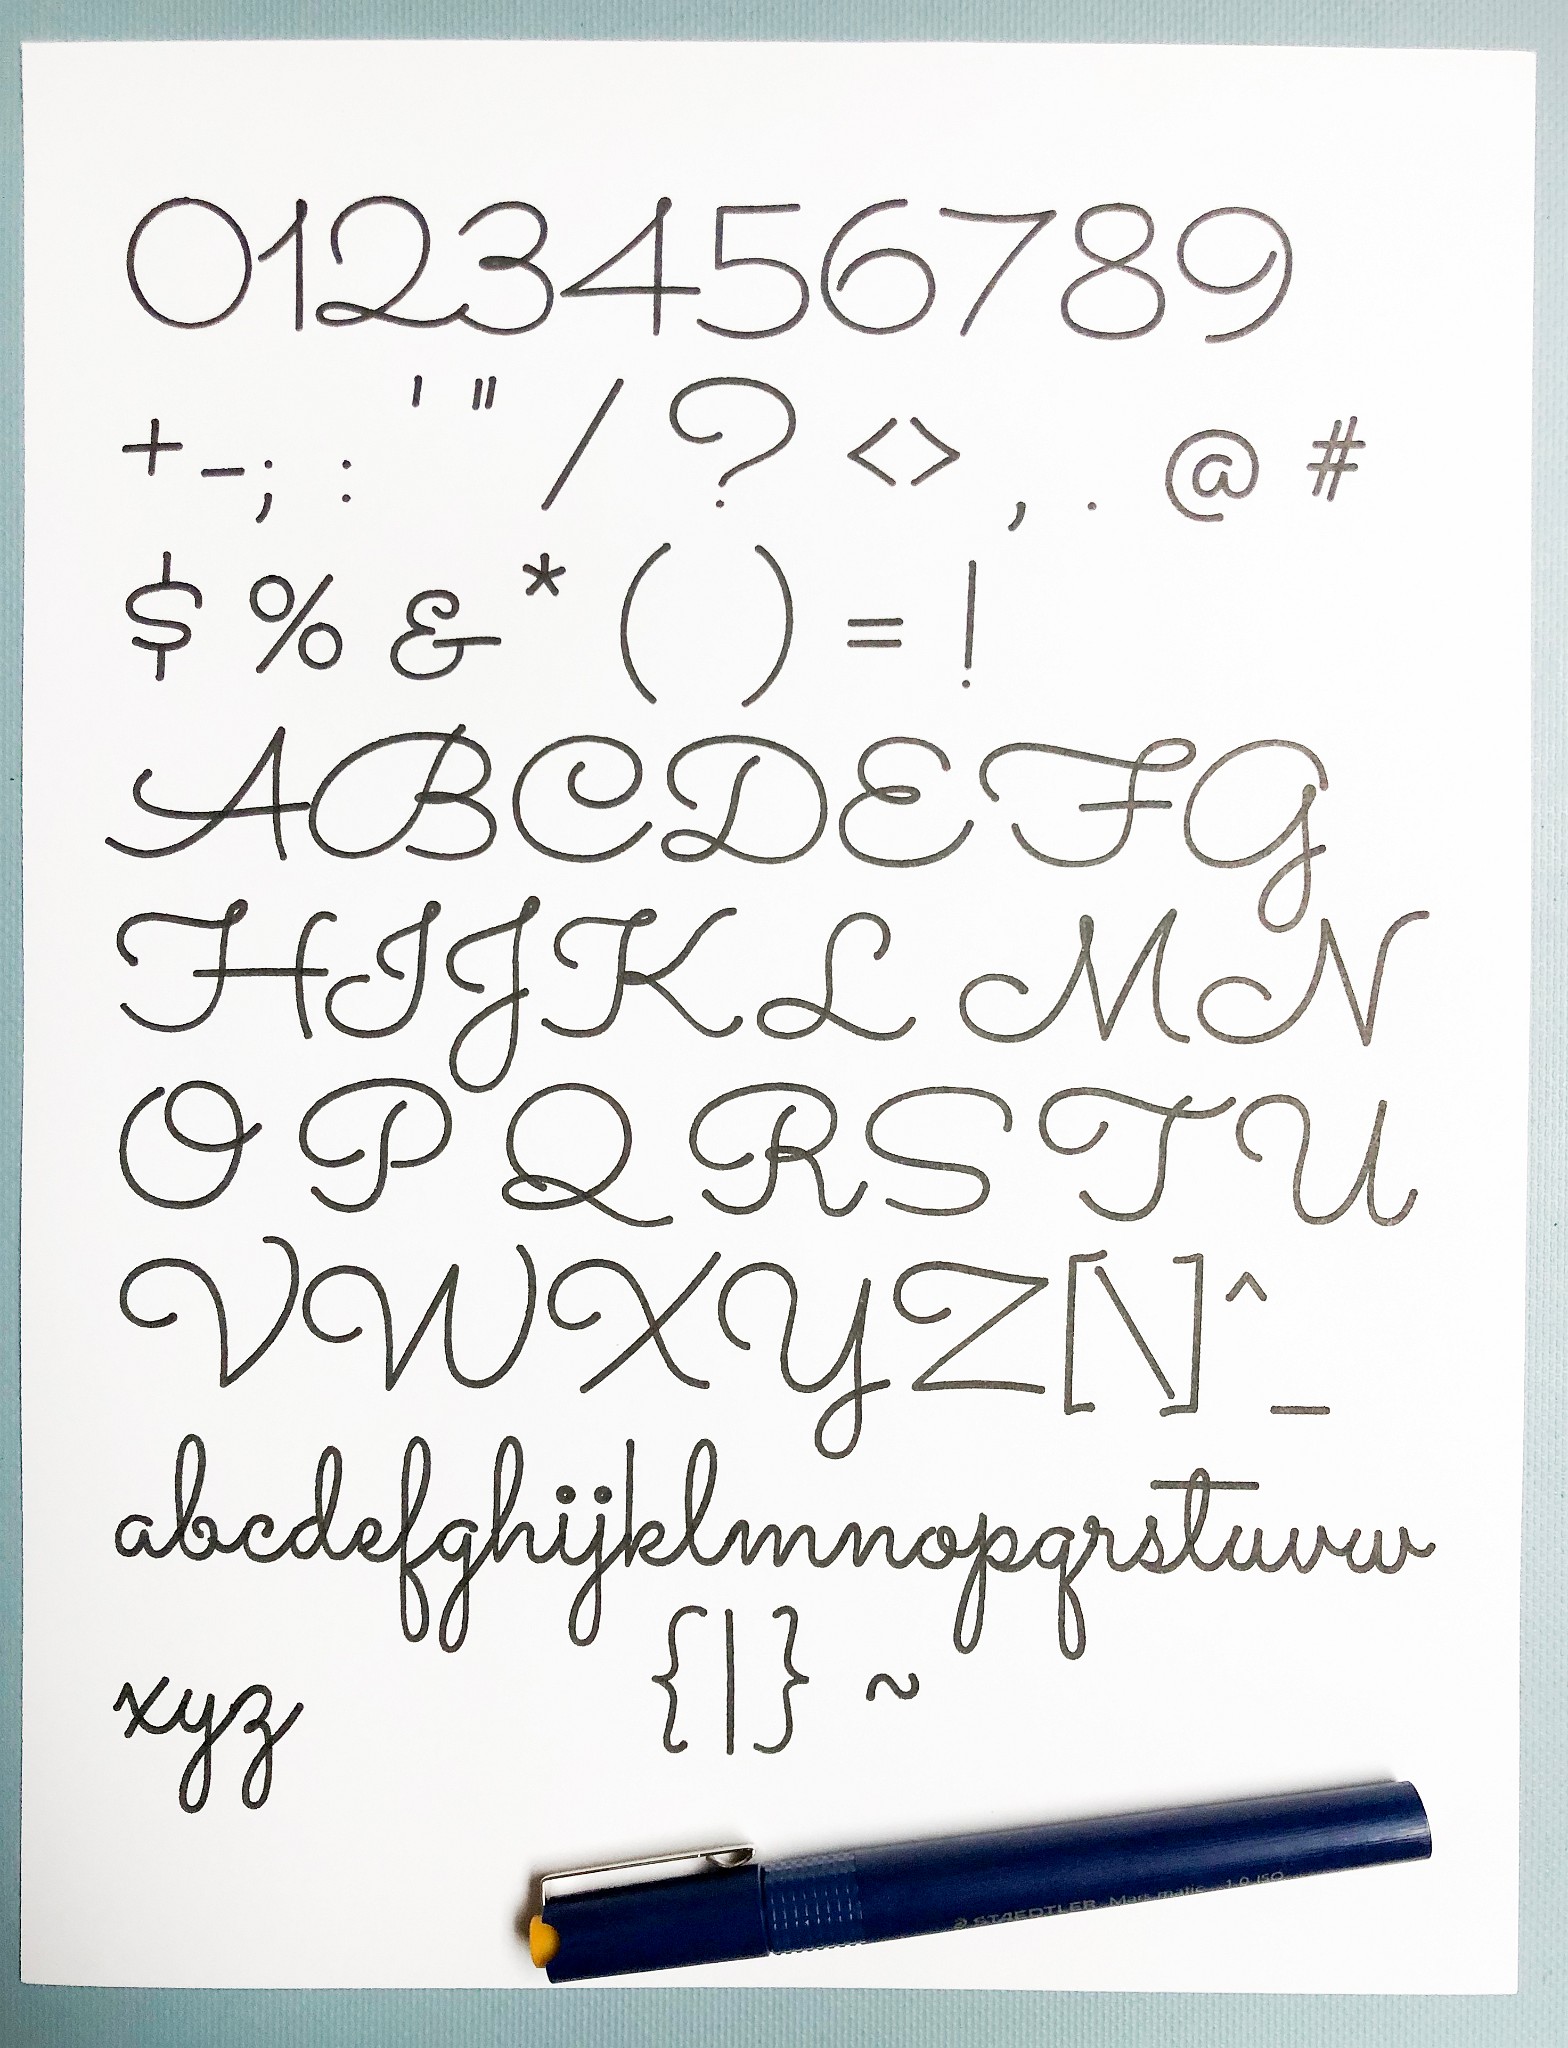 0123456789
+-; : ' " / ? <> , . @ #
$ % & * ( ) = !
ABCDEFG
HIJKL MN
OPQRSTU
VWXYZ[\]^_
abcdefghijklmnopqrstuvw
xyz {|} ~
STAEDTLER Mars matic 1.0 ISO